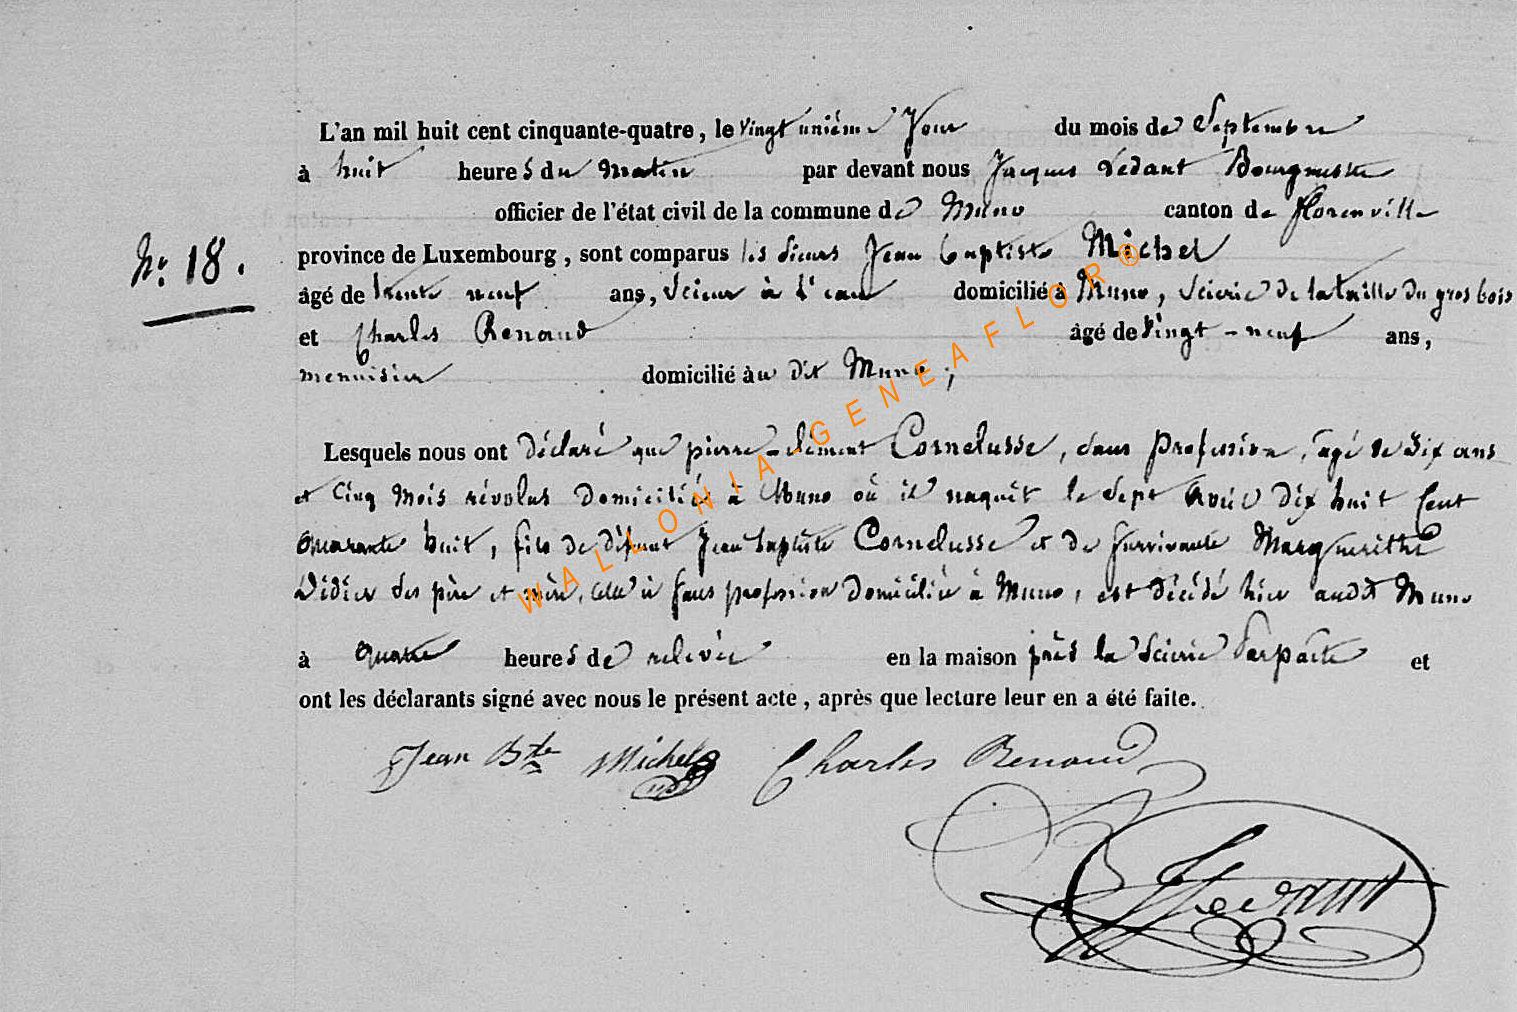 L'an mil huit cent cinquante-quatre, le vingt unième jour du mois de Septembre
à huit heures du matin par devant nous Jacques Ledant Bourgmestre
officier de l'état civil de la commune de Muno canton de florenville
N° 18.
province de Luxembourg, sont comparus les Sieurs Jean baptiste Michel
âgé de trente neuf ans, Scieur à l'eau domicilié à Muno, Scierie de la taille du gros bois
et Charles Renaud âgé de vingt-neuf ans,
menuisier domicilié au dit Muno;
Lesquels nous ont déclaré que pierre-clément Cornelusse, sans profession, âgé de Six ans
et Cinq mois révolus domicilié à Muno où il naquit le Sept Avril dix huit Cent
quarante huit, fils de défunt Jean baptiste Cornelusse et de survivante Marguerithe
Didier ses père et mère, celle ci sans profession domiciliée à Muno, est décédé hier audit Muno
à quatre heures de relevée en la maison près la Scierie et
ont les déclarants signé avec nous le présent acte, après que lecture leur en a été faite.
Jean Bte Michel Charles Renaud
JLedant
WALLONIA-GENEAFLOR®